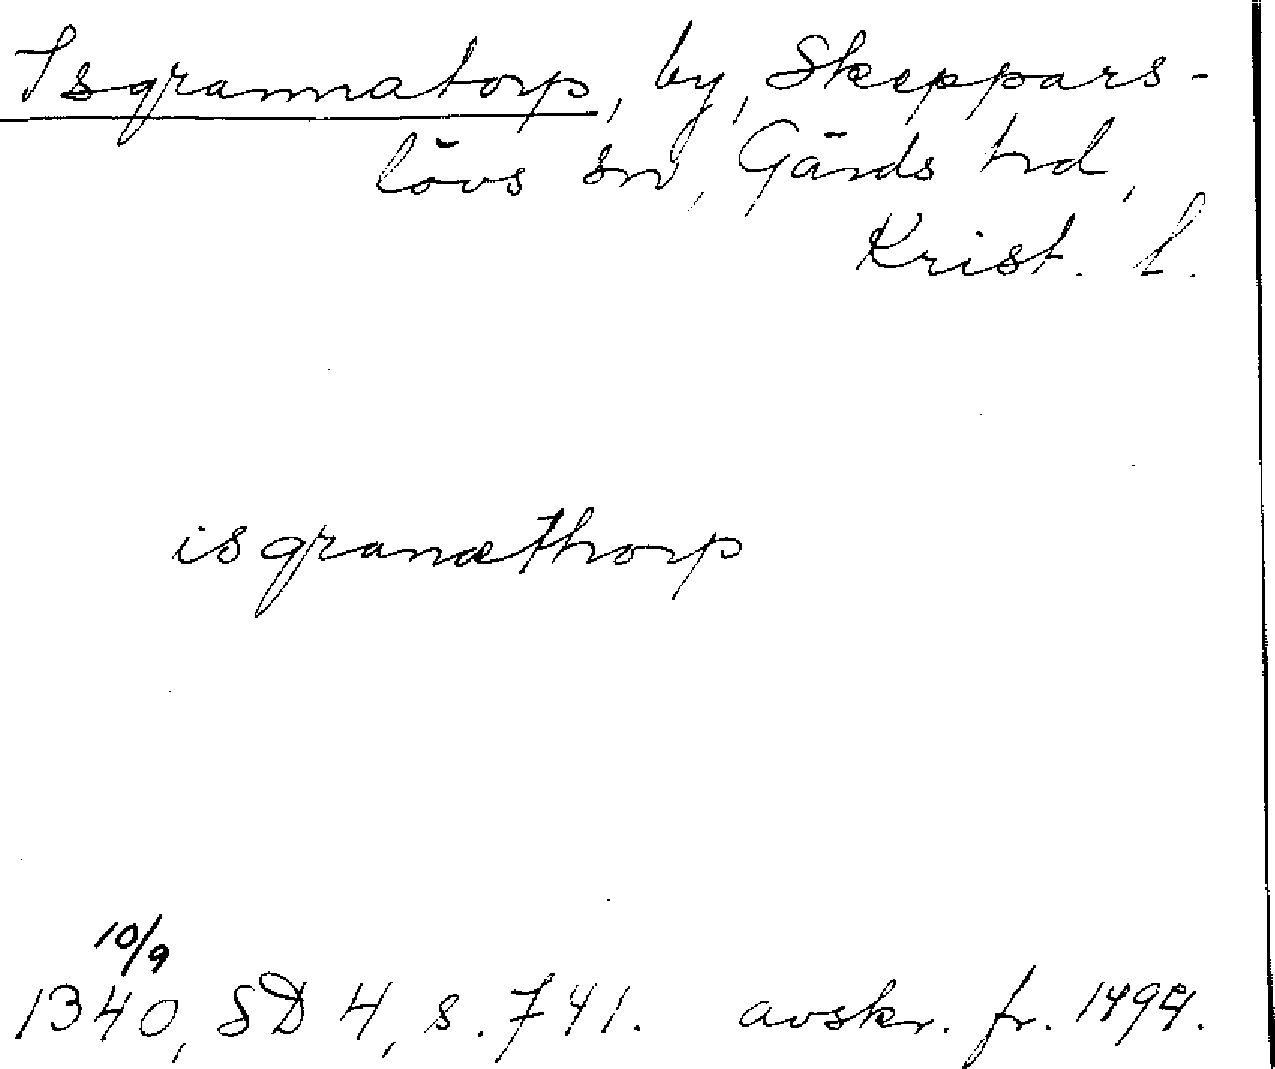 Isgrannatorp, by, Skeppars-
lövs sn, Gärds hd,
Krist. l.
isgranæthorp
10/9
1340, SD 4, s. 741. avskr. fr. 1494.